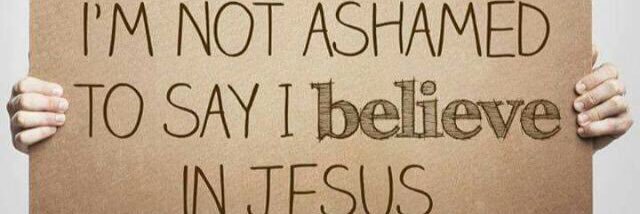 I'M NOT ASHAMED
TO SAY I believe
IN JESUS